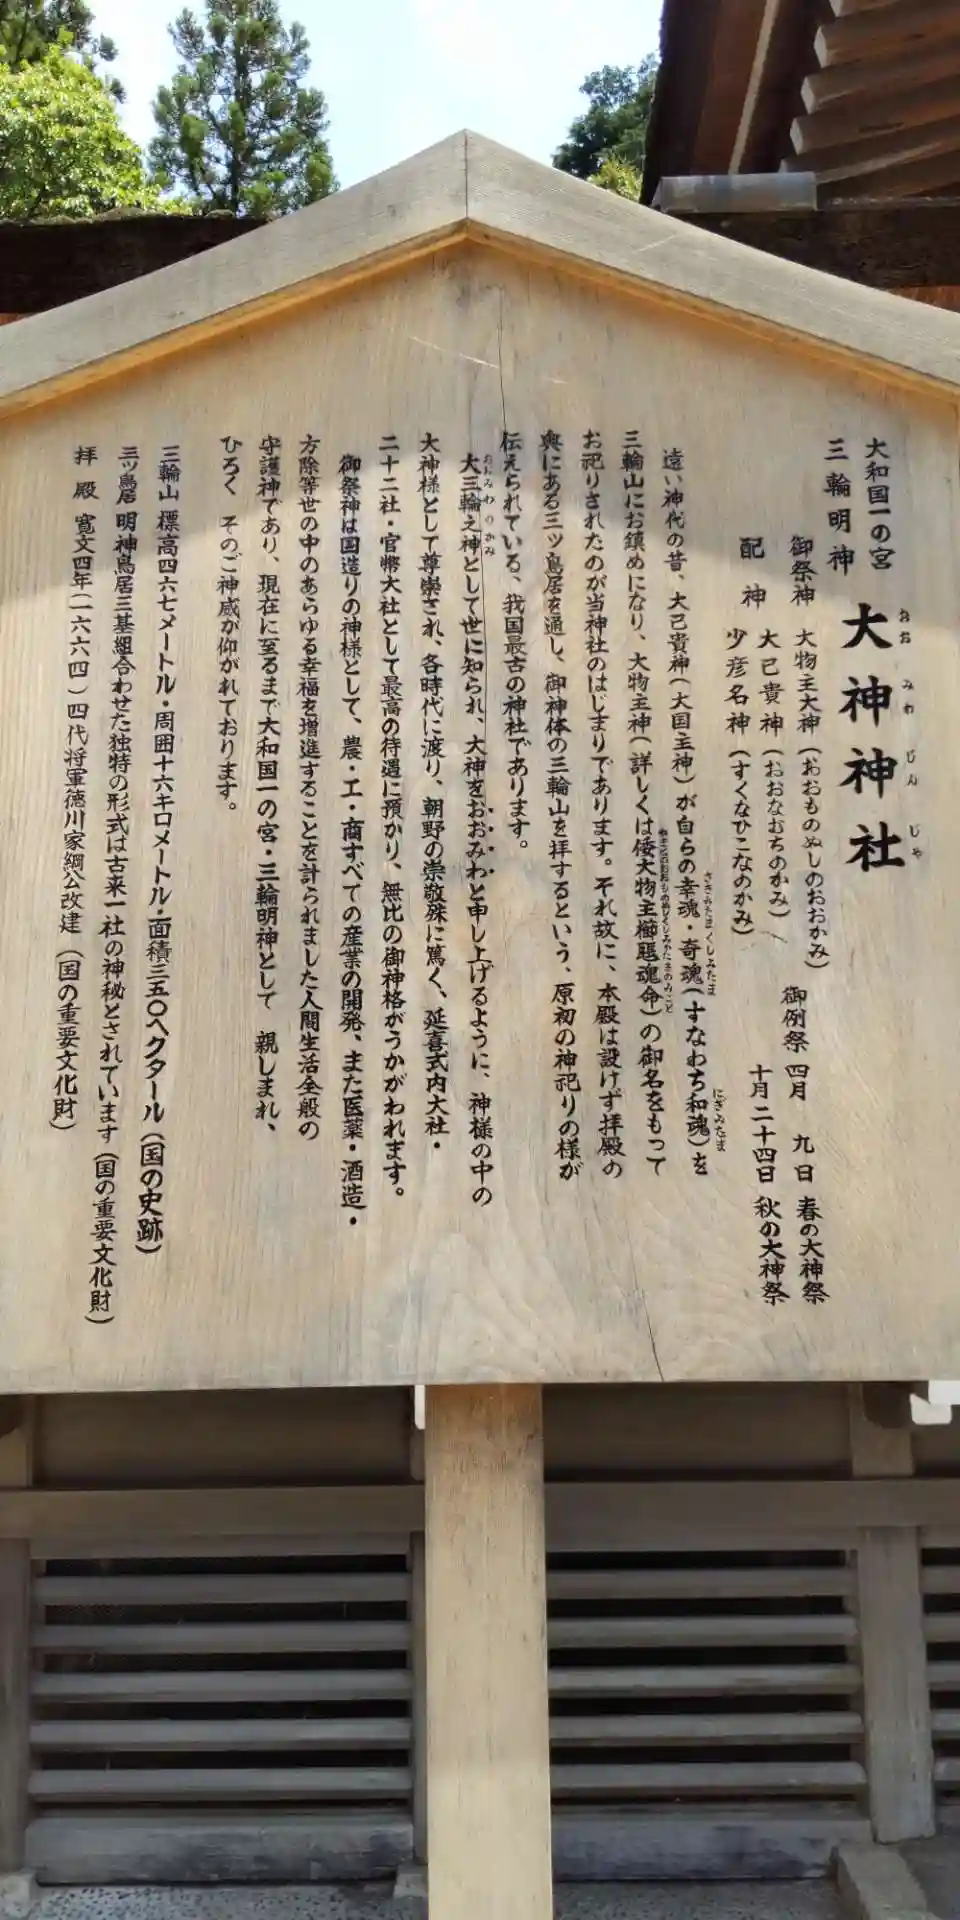 大和国一の宮
三輪明神
大神神社
おお みわ じん じゃ
御祭神 大物主大神(おおものぬしのおおかみ)
配神 大己貴神(おおなむちのかみ)
少彦名神(すくなひこなのかみ)
御例祭 四月 九日 春の大神祭
十月二十四日 秋の大神祭
遠い神代の昔、大己貴神(大国主神)が自らの幸魂・奇魂(すなわち和魂)を
さきみたま くしみたま にぎみたま
三輪山にお鎮めになり、大物主神(詳しくは倭大物主櫛𤭖魂命)の御名をもって
やまとのおおものぬしくしみかたまのみこと
お祀りされたのが当神社のはじまりであります。それ故に、本殿は設けず拝殿の
奥にある三ッ鳥居を通し、御神体の三輪山を拝するという、原初の神祀りの様が
伝えられている、我国最古の神社であります。
大三輪之神として世に知られ、大神をおおみわと申し上げるように、神様の中の
おおみわのかみ
大神様として尊崇され、各時代に渡り、朝野の崇敬殊に篤く、延喜式内大社・
二十二社・官幣大社として最高の待遇に預かり、無比の御神格がうかがわれます。
御祭神は国造りの神様として、農・工・商すべての産業の開発、また医薬・酒造・
方除等世の中のあらゆる幸福を増進することを計られました人間生活全般の
守護神であり、現在に至るまで大和国一の宮・三輪明神として 親しまれ、
ひろく そのご神威が仰がれております。
三輪山 標高四六七メートル・周囲十六キロメートル・面積三五〇ヘクタール(国の史跡)
三ッ鳥居 明神鳥居三基組合わせた独特の形式は古来一社の神秘とされています(国の重要文化財)
拝殿 寛文四年(一六六四)四代将軍徳川家綱公改建(国の重要文化財)